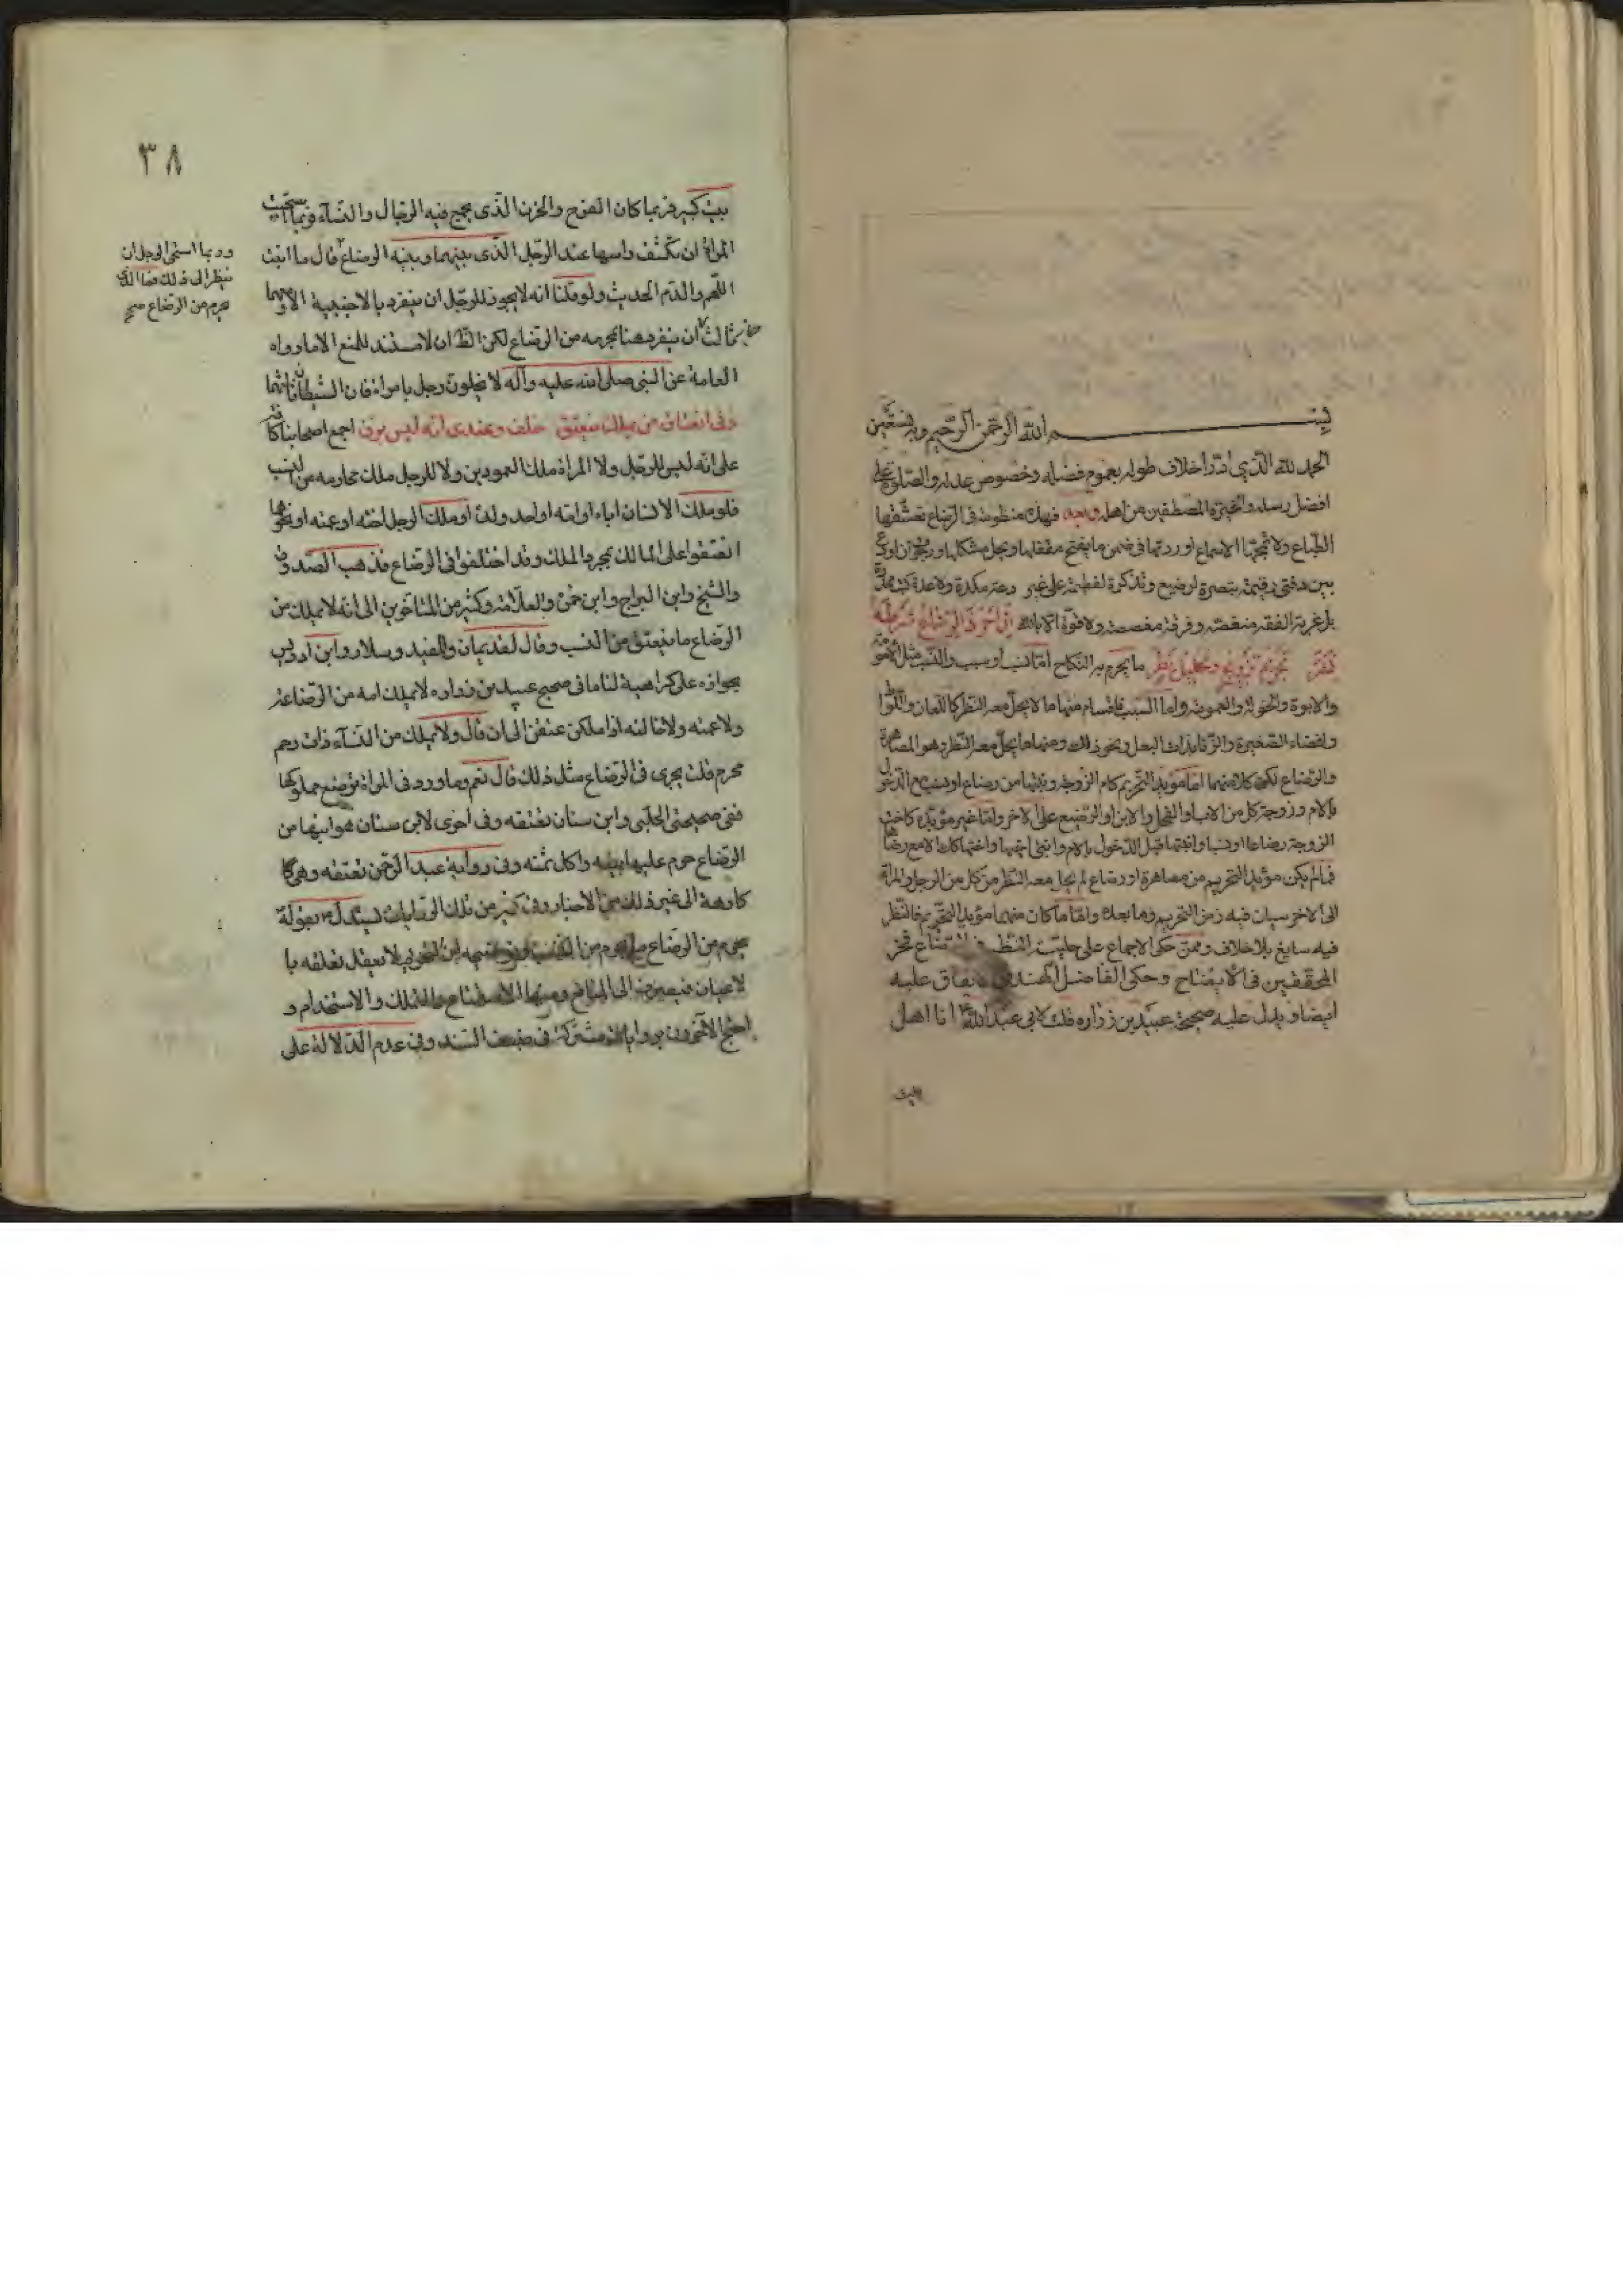 بسم الله الرحمن الرحيم وبه نستعين
الحمد لله الذي ادر اخلاف طوله بعموم فضله وخصوص عدله والصلوة على
افضل رسله والخيرة المصطفين من اهله وبعد فهذه منظومة في الرضاع تعشقها
الطباع ولا تمجها الاسماع اوردتها في ضمن ما يفتح مقفلها ويحل مشكلها
بين دفتي رقيمة تبصرة لرضيع وتذكرة لفطيم على غير
بل غربة الفقه منغصة وفرقة مغصصة ولا قوة الا بالله
تحريم تزويج وتحليل نظر ما يحرم به النكاح اما نسب او سبب والنسب مثل الامومة
والابوة والخؤلة والعمومة واما السبب فاقسام منها ما لا يحل معه النظر كاللعان واللواط
وافضاء الصغيرة والزنا بذات البعل ونحو ذلك ومنها ما يحل معه النظر وهو المصاهرة
والرضاع لكن كل منهما اما مؤبد التحريم كام الزوجة وبنتها من رضاع او نسب مع الدخول
بالام وزوجة كل من الاب او الفحل والابن او الرضيع على الاخر واما غير مؤبده كاخت
الزوجة رضاعا او نسبا وابنتها قبل الدخول بالام وابنتي اخيها واختها كلا مع رضاها
فما لم يكن مؤبد التحريم من مصاهرة او رضاع لم يحل معه النظر من كل من الرجل والمراة
الى الاخر سيان فيه زمن التحريم وما بعده واما ما كان منهما مؤبد التحريم فالنظر
فيه سايغ بلا خلاف وممن حكى الاجماع على حلية النظر في الرضاع فخر
المحققين في الايضاح وحكى الفاضل الهندي الاتفاق عليه
ايضا ويدل عليه صحيحة عبيد بن زرارة قلت لابي عبد الله ع انا اهل
بيت
٣٨
بيت كبير فربما كان الفرح والحزن الذي يجمع فيه الرجال والنساء فربما استحيت
المراة ان تكشف راسها عند الرجل الذي بينها وبينه الرضاع قال ما انبت
اللحم والدم الحديث ولو قلنا انه لا يجوز للرجل ان ينفرد بالاجنبية الا ومعهما
ثالث ان ينفرد هنا بمحرمه من الرضاع لكن الظ ان لا مستند للمنع الا ما رواه
العامة عن النبي صلى الله عليه وآله لا يخلون رجل بامراة فان الشيطان ثالثهما
وفي انعتاق من يملك منعتق خلف وعندي انه ليس برق اجمع اصحابنا كافة
على انه ليس للرجل ولا المراة ملك العمودين ولا للرجل ملك محارمه من النسب
فلو ملك الانسان اباه او امه او احد ولده او ملك الرجل اخته او عمته او نحوها
انعتقوا على المالك بمجرد الملك وقد اختلفوا في الرضاع فذهب الصدوق
والشيخ وابن البراج وابن حمزة والعلامة وكثير من المتاخرين الى انه لا يملك من
الرضاع ما ينعتق من النسب وقال القديمان والمفيد وسلار وابن ادريس
بجوازه على كراهية لنا ما في صحيح عبيد بن زرارة لا يملك امه من الرضاعة
ولا عمته ولا خالته اذا ملكن عتقن الى ان قال ولا يملك من النساء ذات رحم
محرم قلت يجرى في الرضاع مثل ذلك قال نعم وما ورد في المراة ترضع مملوكها
ففي صحيحتي الحلبي وابن سنان تعتقه وفي اخرى لابن سنان هو ابنها من
الرضاع حرم عليها بيعه واكل ثمنه وفي رواية عبد الرحمن تعتقه وهي
كارهة الى غير ذلك من الاخبار وفي كثير من تلك الروايات بقوله
يحرم من الرضاع ما يحرم من النسب لا يعقل تعلقه با
لاعيان فيصرف الى المنافع ومنها الاستمتاع والتملك والاستخدام و
احتج الآخرون بروايات مشتركة في ضعف السند وفي عدم الدلالة على
وربما استحى الرجل ان
ينظر الى ذلك فما الذي
يحرم من الرضاع صح